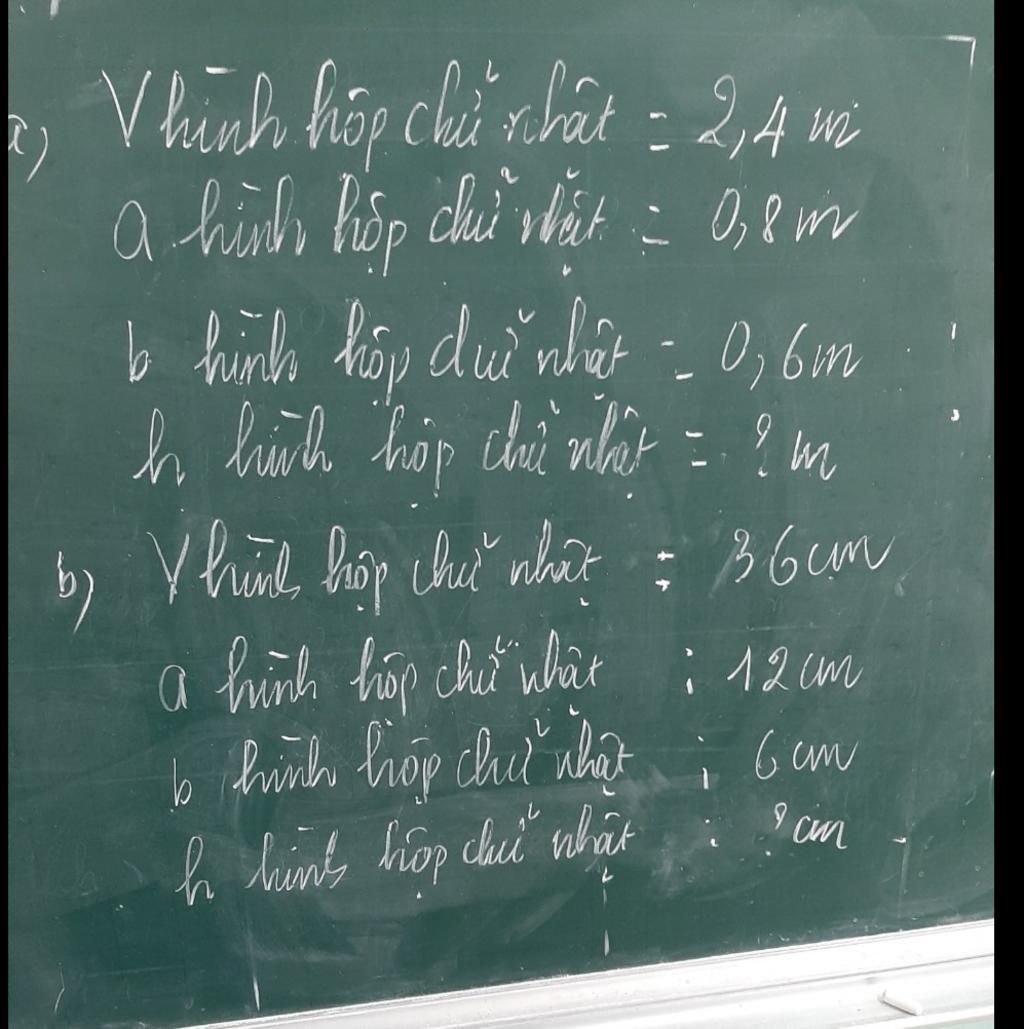 a) V hình hộp chữ nhật = 2,4 m
a hình hộp chữ nhật = 0,8 m
b hình hộp chữ nhật = 0,6m
h hình hộp chữ nhật = ? m
b) V hình hộp chữ nhật : 36 cm
a hình hộp chữ nhật : 12 cm
b hình hộp chữ nhật : 6 cm
h hình hộp chữ nhật : ? cm